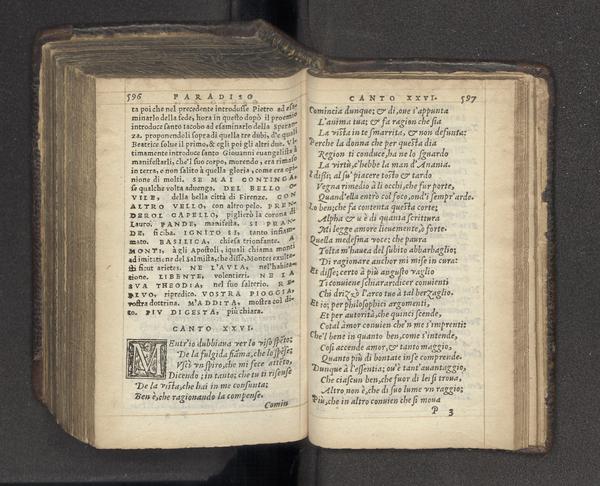 596 PARADISO
ta poi che nel precedente introdusse Pietro ad esa-
minarlo della fede, hora in questo dopò il proemio
introduce santo Iacobo ad esaminarlo della speran
za. proponendoli sopra di quella tre dubi, d'e quali
Beatrice solue il primo, & egli poi gli altri due. Vl-
timamente introduce santo Giouanni euangelista à
manifestarli, che'l suo corpo, morendo, era rimaso
in terra, e non salito à quella gloria, come era opi
nione di molti. SE MAI CONTINGA,
se qualche volta aduenga. DEL BELLO O
VILE, della bella città di Firenze. CON
ALTRO VELLO, con altro pelo. PREN
DEROL CAPELLO, piglierò la corona di
Lauro. PANDE, manifesta. SI PRAN
DE, si ciba. IGNITO SI, tanto infiam
mato. BASILICA, chiesa trionfante. A
MONTI, à gli Apostoli, i quali chiama monti
ad imitatione del Salmista, che disse, Montes exulta-
sti sicut arietes. NE L'AVLA, nel'habita-
tione. LIBENTE, volentieri. NE LA
SVA THEODIA, nel suo salterio. RE
PLVO, ripredico. VOSTRA PIOGGIA,
vostra dottrina. M'ADDITA, mostra col di-
to. PIV DIGESTA, più chiara.
CANTO XXVI.
MEntr'io dubbiaua per lo viso spēto;
De la fulgida fiāma, che lo spēse;
Vscì vn spiro, che mi fece attēto,
Dicendo; in tanto; che tu ti risense
De la vista, che hai in me consunta;
Ben è, che ragionando la compense.
Comin
CANTO XXVI. 597
Comincia dunque; & di, oue s'appunta
L'anima tua; & fa ragion che sia
La vista in te smarrita, & non defunta:
Perche la donna che per questa dia
Region ti conduce, ha ne lo sguardo
La virtù, c'hebbe la man d'Anania.
I dissi; al su' piacere tosto & tardo
Vegna rimedio à li occhi, che fur porte,
Quand'ella entrò col foco, ond'i semprardo.
Lo ben; che fa contenta questa corte;
Alpha & ω è di quanta scrittura
Mi legge amore lieuemente, ò forte.
Quella medesima voce; che paura
Tolta m'hauea del subito abbarbaglio;
Di ragionare anchor mi mise in cura:
Et disse; certo à più angusto vaglio
Ti conuiene schiarar: dicer conuienti
Chi drizzò l'arco tuo à tal berzaglio.
Et io; per philosophici argomenti,
Et per autorità, che quinci scende,
Cotal amor conuien che'n me s'imprenti:
Che'l bene in quanto ben, come s'intende,
Così accende amor, & tanto maggio,
Quanto più di bontate in se comprende.
Dunque à l'essentia; ou'è tant'auantaggio,
Che ciascun ben, che fuor di lei si troua,
Altro non è, che di suo lume vn raggio;
Più, che in altro conuien che si moua
P 3